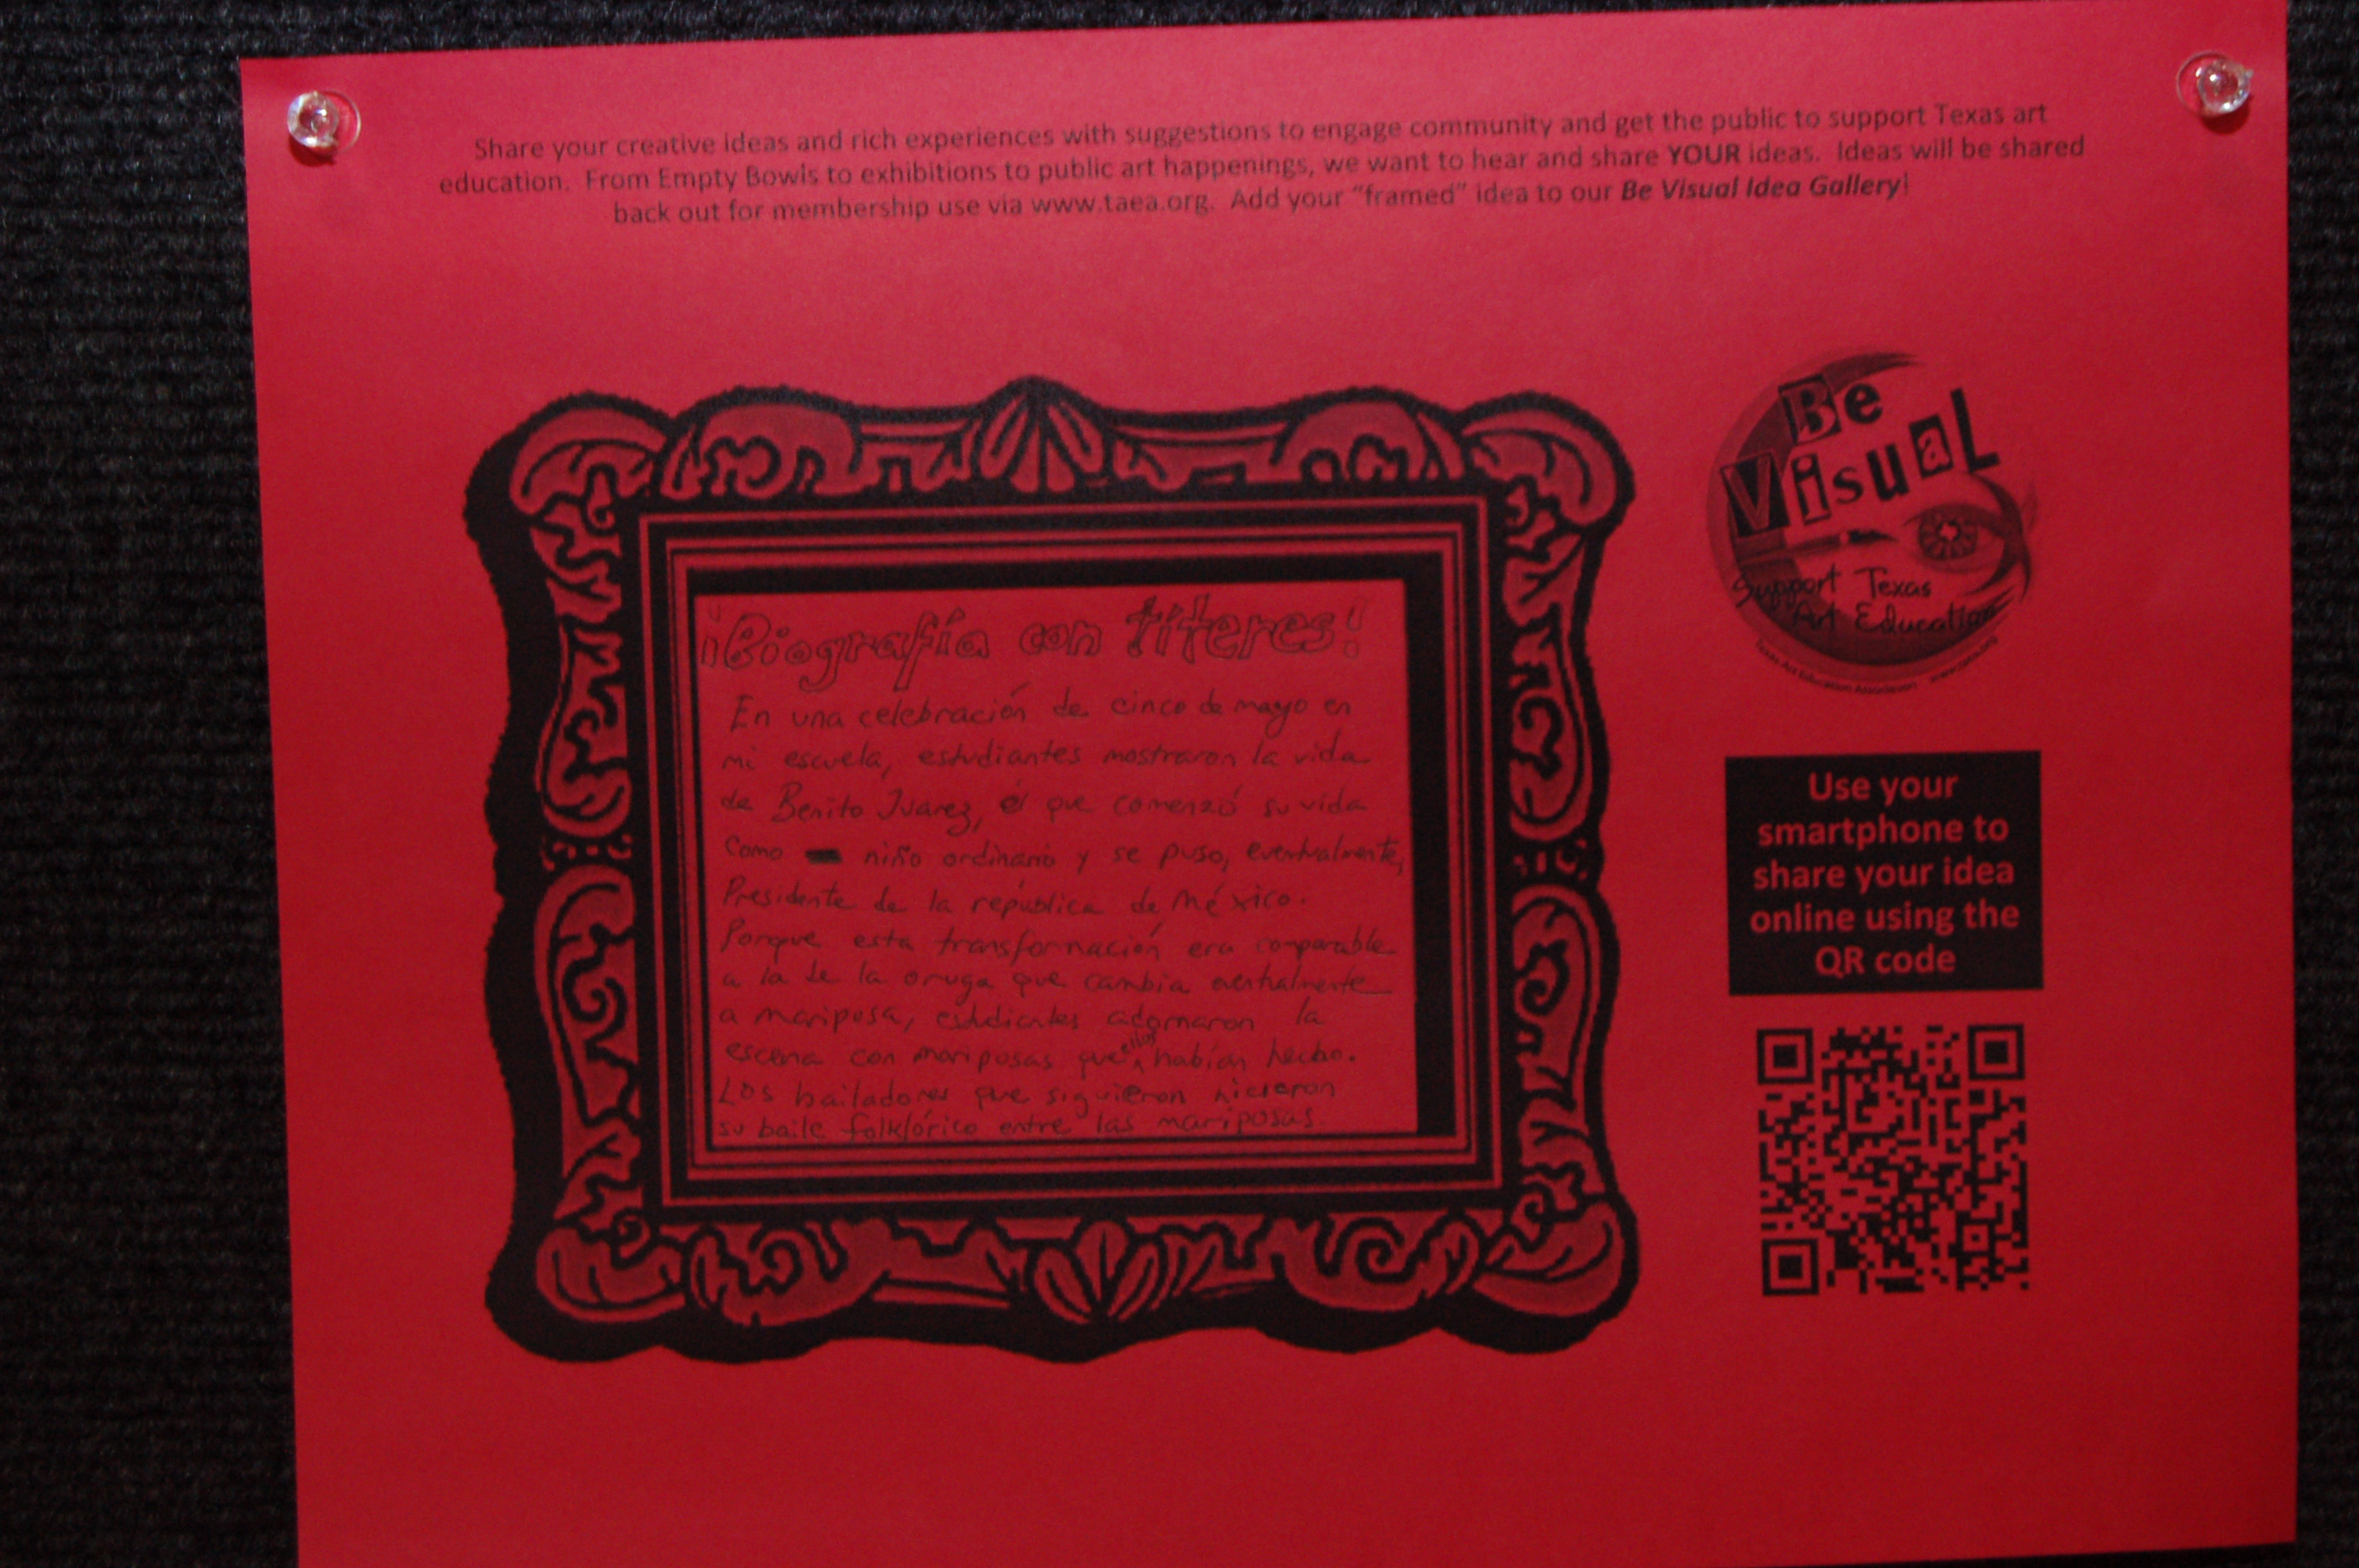 Share your creative ideas and rich experiences with suggestions to engage community and get the public to support Texas art
education. From Empty Bowls to exhibitions to public art happenings, we want to hear and share YOUR ideas. Ideas will be shared
back out for membership use via www.taea.org. Add your “framed” idea to our Be Visual Idea Gallery!
Be
Visual
Support Texas
Art Education
Texas Art Education Association
¡Biografía con títeres!
En una celebración de cinco de mayo en
mi escuela, estudiantes mostraron la vida
de Benito Juarez, él que comenzó su vida
como niño ordinario y se puso, eventualmente,
Presidente de la república de México.
Porque esta transformación era comparable
a la de la oruga que cambia eventualmente
a mariposa, estudiantes adornaron la
escena con mariposas que ellos habían hecho.
Los bailadores que siguieron hicieron
su baile folklórico entre las mariposas.
Use your
smartphone to
share your idea
online using the
QR code